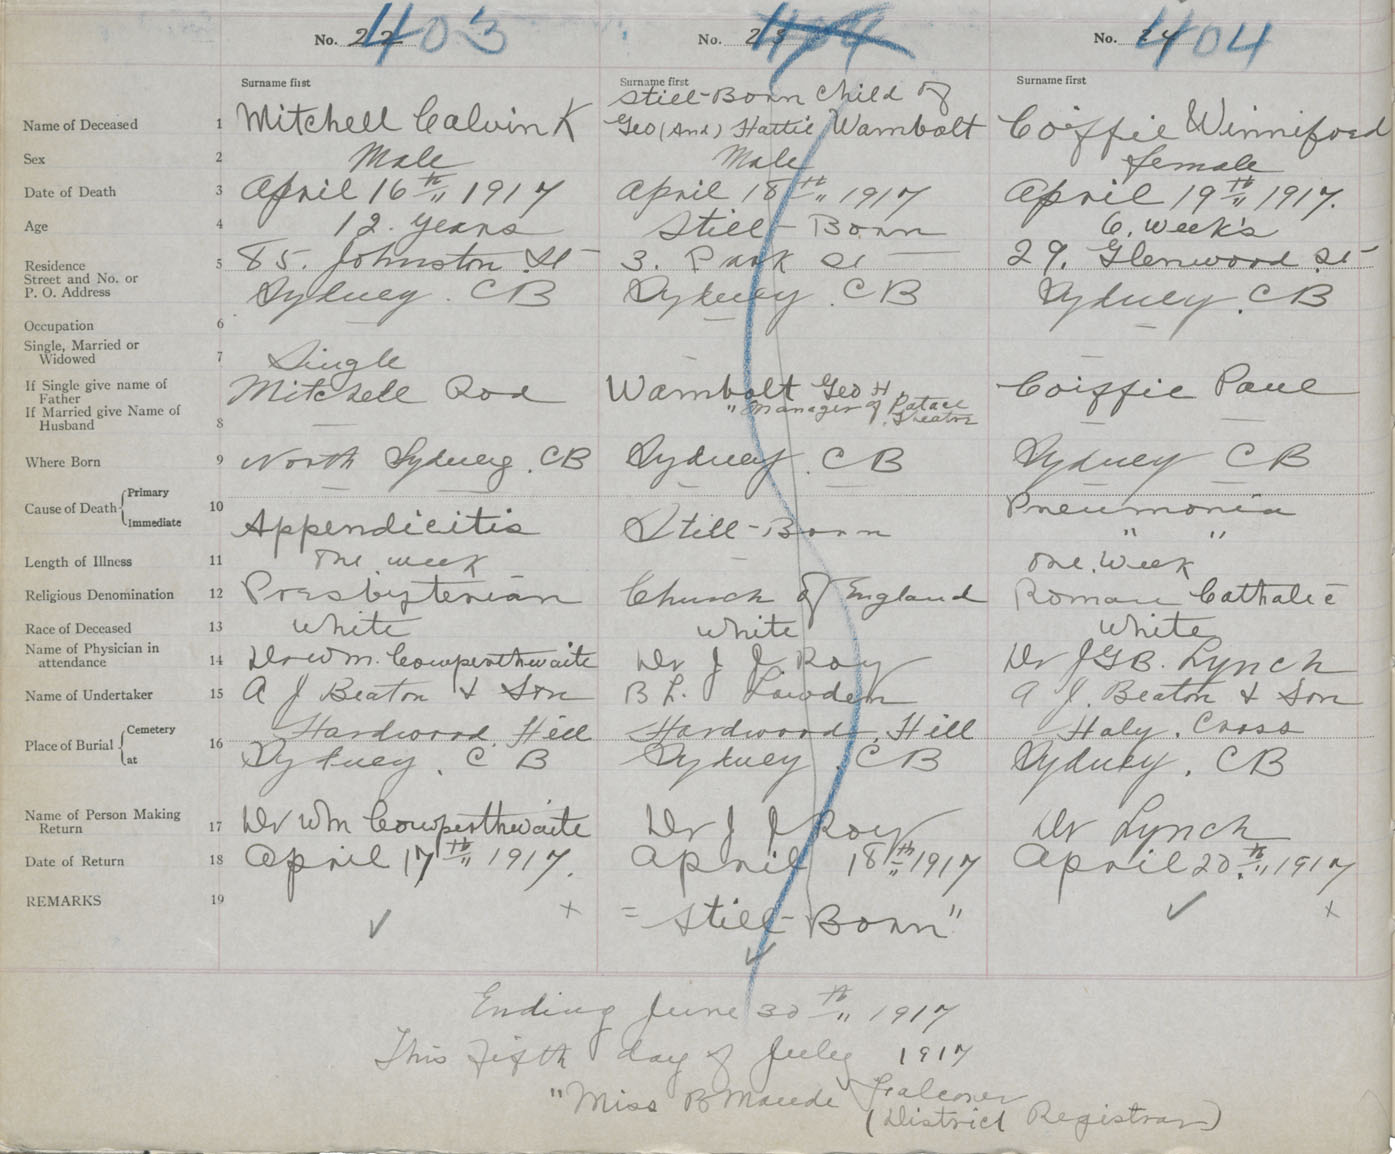 No. 22 403
No. 23 404
No. 24 404
Surname first
Surname first
Surname first
Name of Deceased 1 Mitchell Calvin K
Still-Born Child of
Geo (And) Hattie Wambolt
Coiffie Winniford
Sex 2 Male Male female
Date of Death 3 April 16th 1917 April 18th 1917 April 19th 1917.
Age 4 12. years Still-Born 6. week's
Residence 5 85. Johnston. St 3. Park St 29. Glenwood. St
Street and No. or
P. O. Address Sydney. CB Sydney. CB Sydney. CB
Occupation 6
Single, Married or
Widowed 7 Single
If Single give name of
Father Mitchell Rod Wambolt Geo H Coiffie Paul
"Manager of Palace
Theatre
If Married give Name of
Husband 8
Where Born 9 North Sydney. CB Sydney. CB Sydney CB
Cause of Death Primary 10 Pneumonia
Immediate Appendicitis Still-Born " "
Length of Illness 11 One week One. Week
Religious Denomination 12 Presbyterian Church of England Roman Catholic
Race of Deceased 13 White White White
Name of Physician in
attendance 14 Dr Wm. Cowperthwaite Dr J J Roy Dr JGB. Lynch
Name of Undertaker 15 A J Beaton & Son B L. Lowden A J. Beaton & Son
Place of Burial Cemetery 16 Hardwood Hill Hardwood. Hill Holy. Cross
at Sydney. CB Sydney. CB Sydney. CB
Name of Person Making
Return 17 Dr Wm Cowperthwaite Dr J J Roy Dr Lynch
Date of Return 18 April 17th 1917. April 18th 1917 April 20th 1917
REMARKS 19 = Still-Born"
Ending June 30th 1917
This Fifth day of July 1917
"Miss B Maude Falconer
(District Registrar)